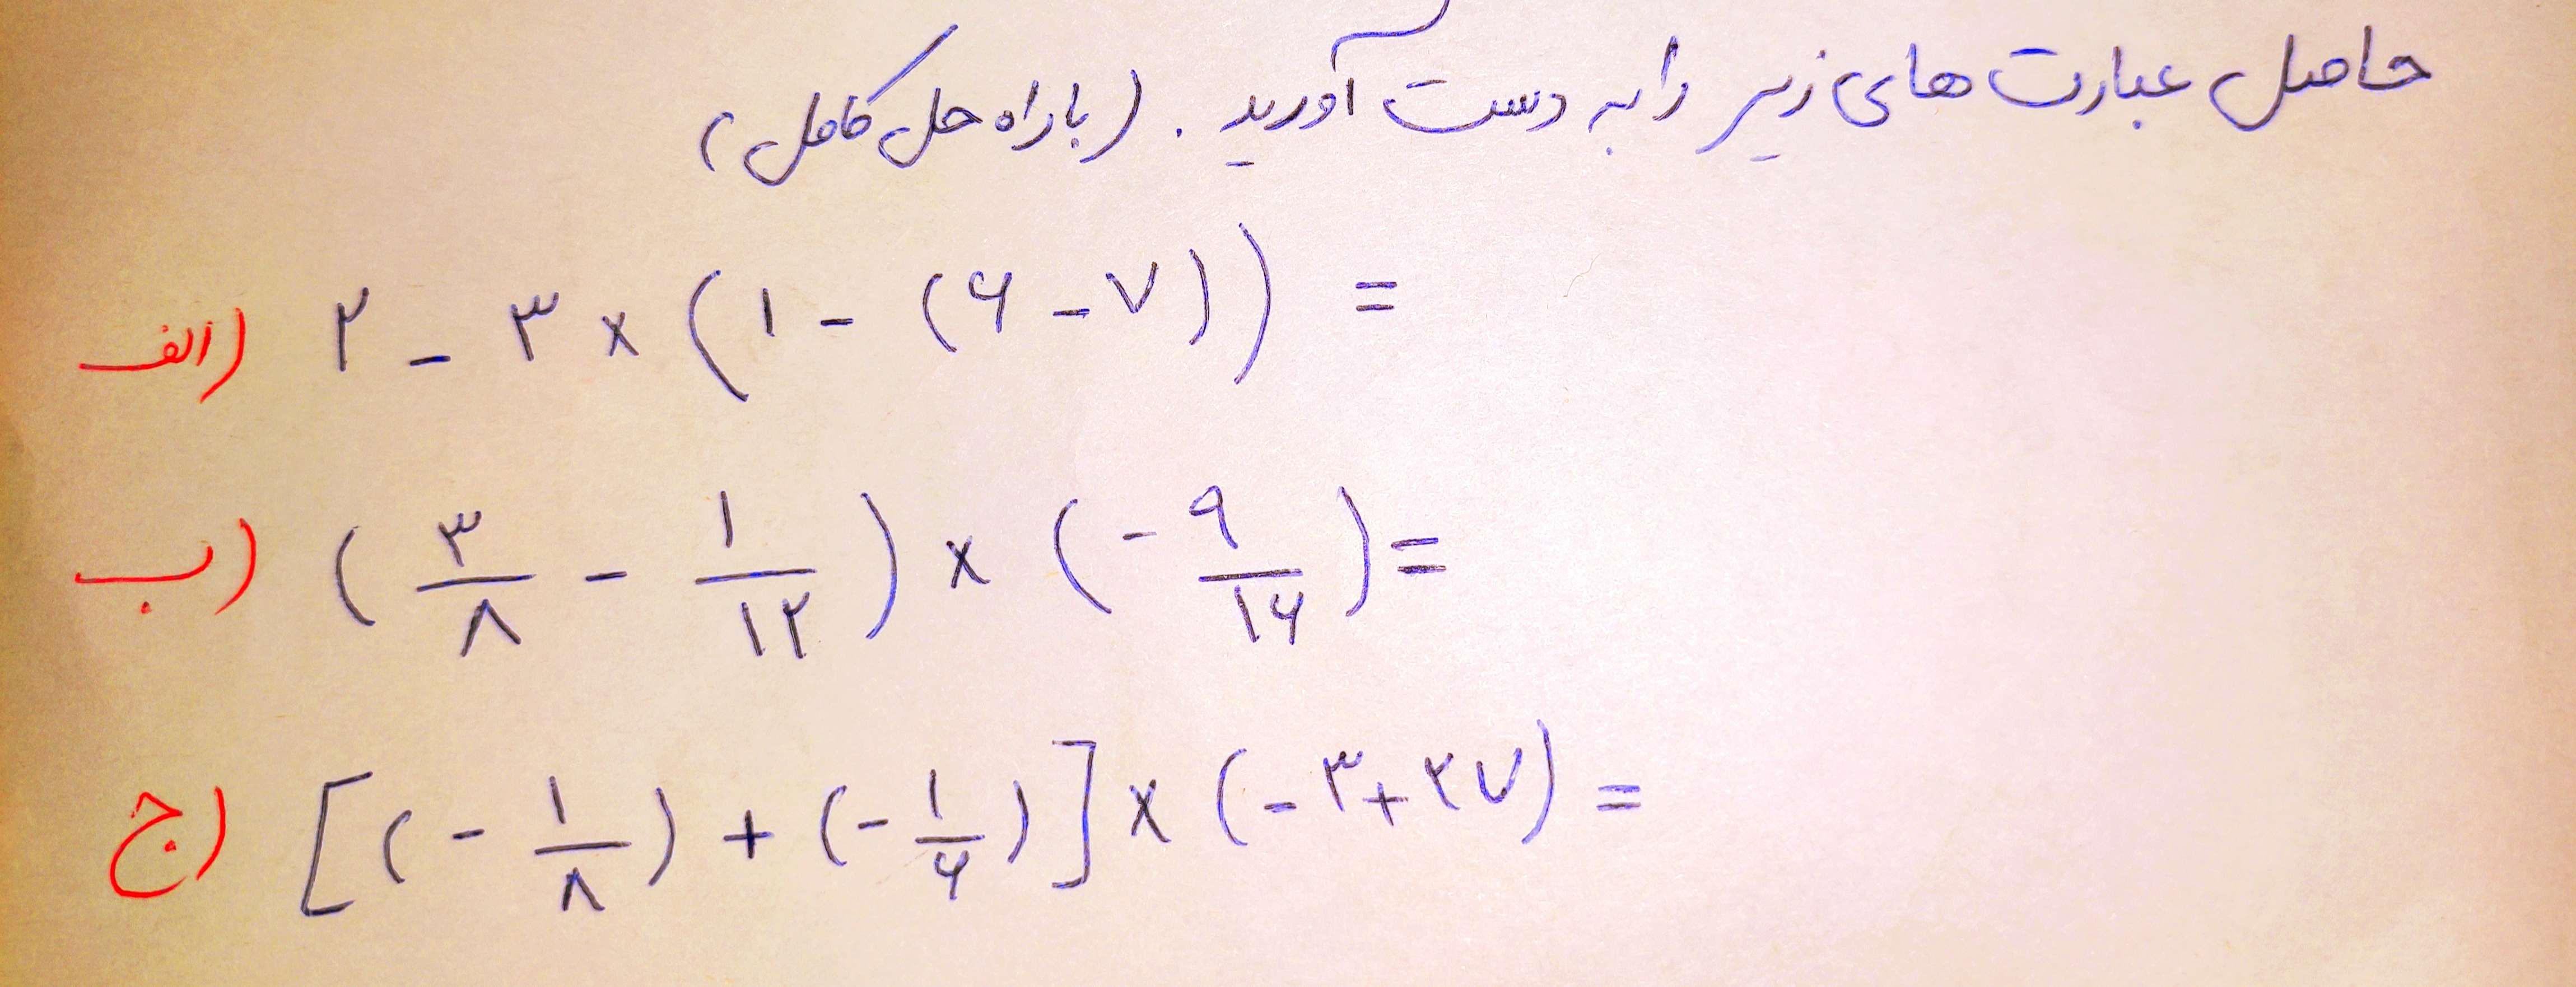 حاصل عبارت های زیر را به دست آورید. (با راه حل کامل)
الف) ۲ - ۳ × (۱ - (۶ - ۷)) =
ب) (۳/۸ - ۱/۱۲) × (-۹/۱۶) =
ج) [(-۱/۸) + (-۱/۶)] × (-۳+۲۷) =